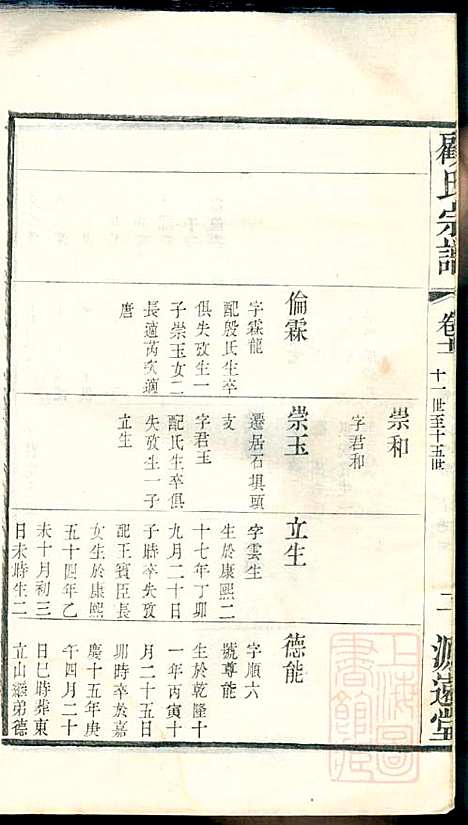 顧氏宗譜
卷
十一世至十五世
二
源遠堂
上海圖書館藏
崇和
字君和
倫霖
字霖龍
配殷氏生卒
俱失攷生一
子崇玉女二
長適芮次適
唐
崇玉
遷居石埧頭
支
字君玉
配氏生卒俱
失攷生一子
立生
立生
字雲生
生於康熙二
十七年丁卯
九月二十日
子時卒失攷
配王賓臣長
女生於康熙
五十四年乙
未十月初三
日未時生二
德能
字順六
號尊能
生於乾隆十
一年丙寅十
月二十五日
卯時卒於嘉
慶十五年庚
午四月二十
日巳時葬東
立山繼弟德